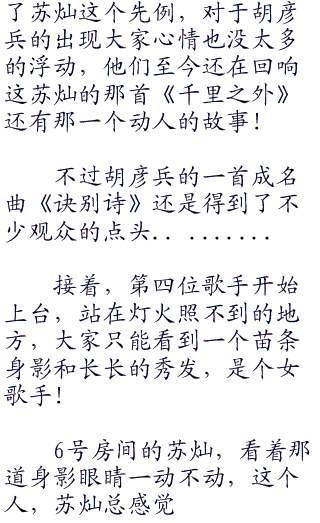 了苏灿这个先例，对于胡彦
兵的出现大家心情也没太多
的浮动，他们至今还在回响
这苏灿的那首《千里之外》
还有那一个动人的故事！
不过胡彦兵的一首成名
曲《诀别诗》还是得到了不
少观众的点头．．．．．．．．．
接着，第四位歌手开始
上台，站在灯火照不到的地
方，大家只能看到一个苗条
身影和长长的秀发，是个女
歌手！
6号房间的苏灿，看着那
道身影眼睛一动不动，这个
人，苏灿总感觉